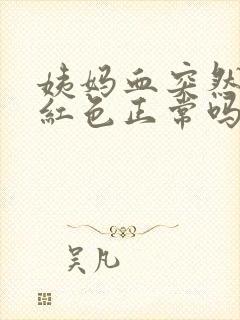 姨妈血突然
红色正常吗
吴凡